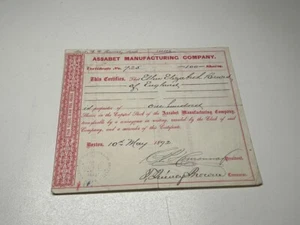 ASSABET MANUFACTURING COMPANY.
Certificate No. 726
This Certifies, That Ellen Elizabeth
of England
proprietor of one hundred
Shares in the Capital Stock of the Assabet Manufacturing Company,
transferable by a conveyance in writing, recorded by the Clerk of said
Company, and a surrender of this Certificate.
Boston, 10th May 1892
President.
Treasurer.